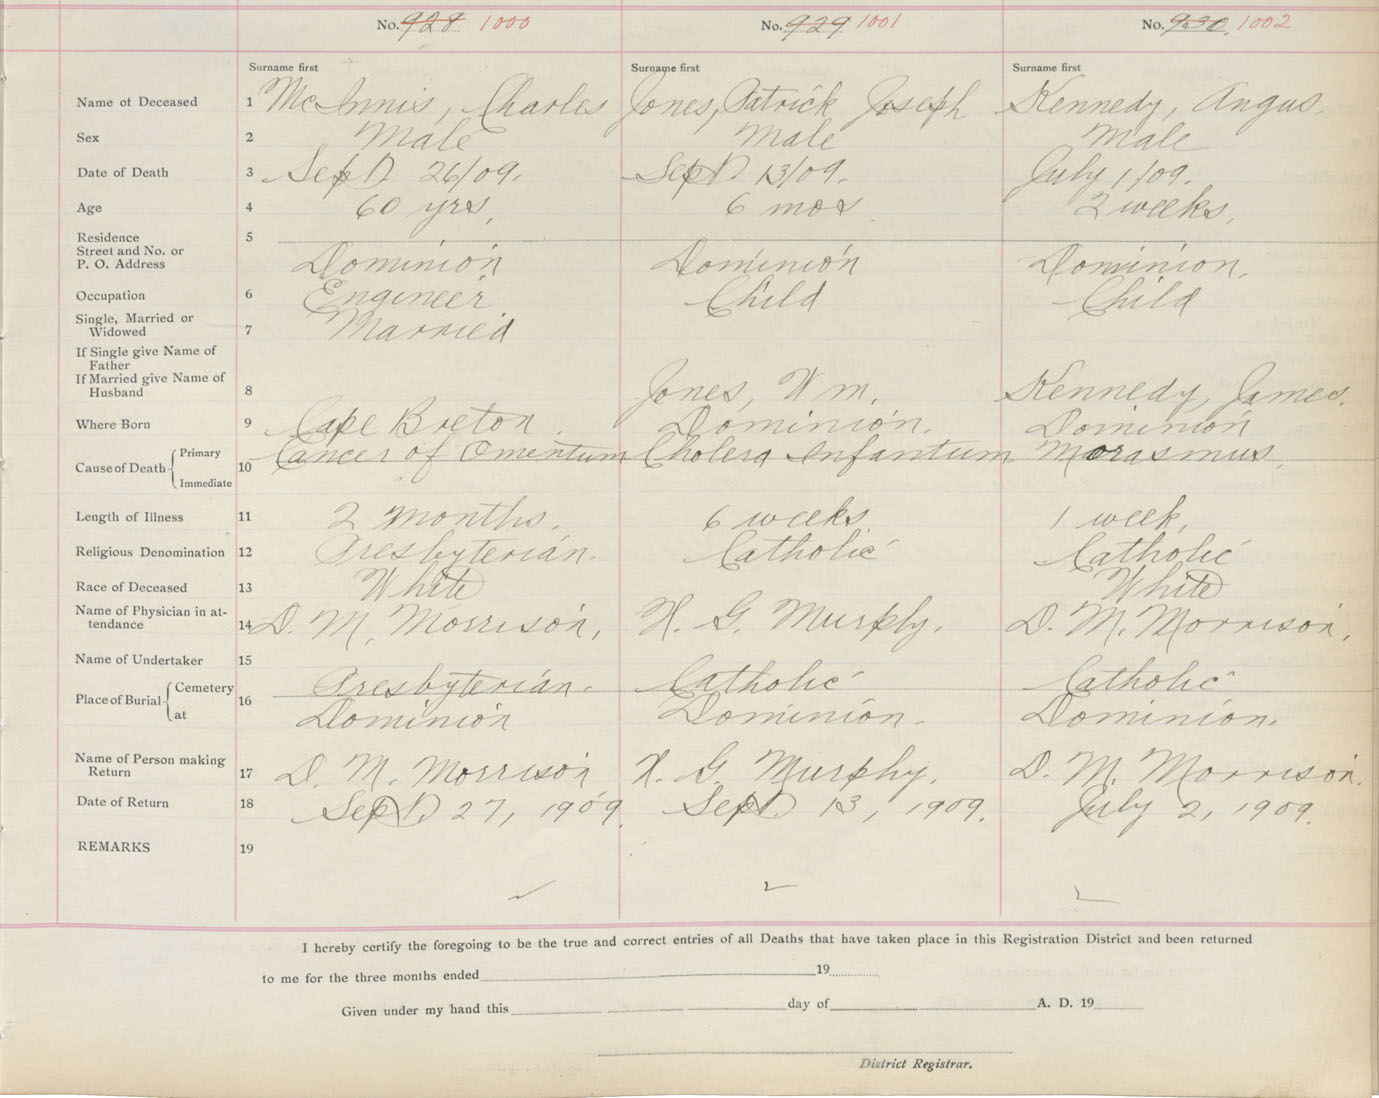 No. 928 1000 No. 929 1001 No. 930 1002
Surname first Surname first Surname first
Name of Deceased 1 McInnis, Charles Jones, Patrick Joseph Kennedy, Angus.
Sex 2 Male Male Male
Date of Death 3 Sept 26/09. Sept 13/09. July 1/09.
Age 4 60 yrs, 6 mos 2 weeks,
Residence 5
Street and No. or
P. O. Address Dominion Dominion Dominion.
Occupation 6 Engineer Child Child
Single, Married or
Widowed 7 Married
If Single give Name of
Father
If Married give Name of
Husband 8 Jones, Wm. Kennedy, James.
Where Born 9 Cape Breton. Dominion. Dominion
Cause of Death Primary 10 Cancer of Omentum Cholera Infantum Marasmus.
Immediate
Length of Illness 11 2 months. 6 weeks. 1 week.
Religious Denomination 12 Presbyterian. Catholic Catholic
Race of Deceased 13 White White
Name of Physician in at-
tendance 14 D. M. Morrison, H. G. Murphy. D. M. Morrison.
Name of Undertaker 15
Place of Burial Cemetery 16 Presbyterian. Catholic Catholic
at Dominion Dominion. Dominion.
Name of Person making
Return 17 D. M. Morrison H. G. Murphy. D. M. Morrison.
Date of Return 18 Sept. 27, 1909. Sept. 13, 1909. July 2, 1909.
REMARKS 19
I hereby certify the foregoing to be the true and correct entries of all Deaths that have taken place in this Registration District and been returned
to me for the three months ended 19
Given under my hand this day of A. D. 19
District Registrar.